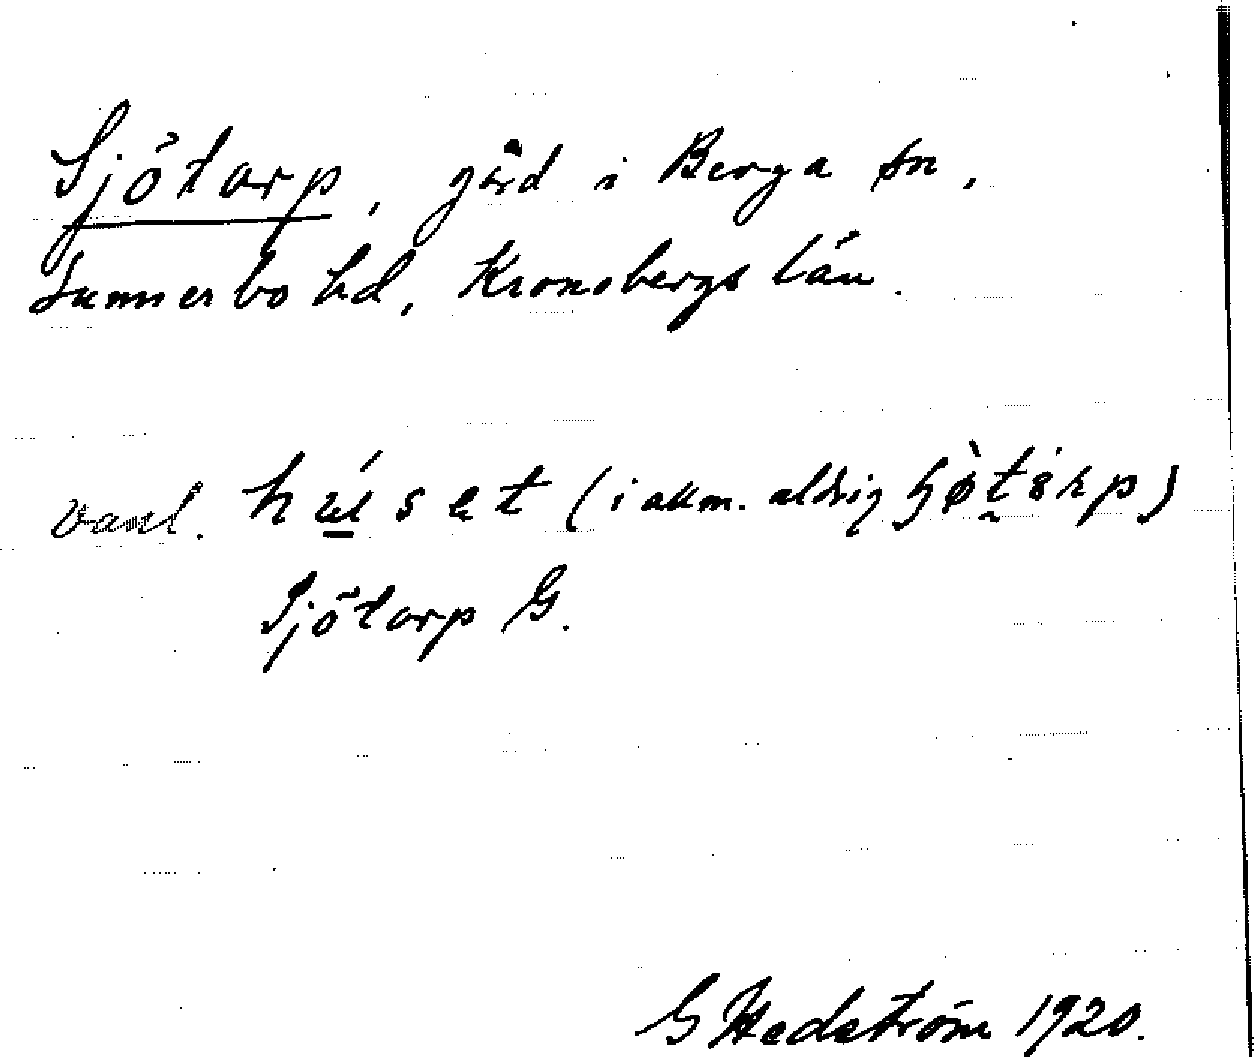 Sjötorp, gård i Berga sn,
Sunnerbo hd, Kronobergs län.
vanl. húset (i allm. aldrig
Sjötorp G.
G Hedström 1920.